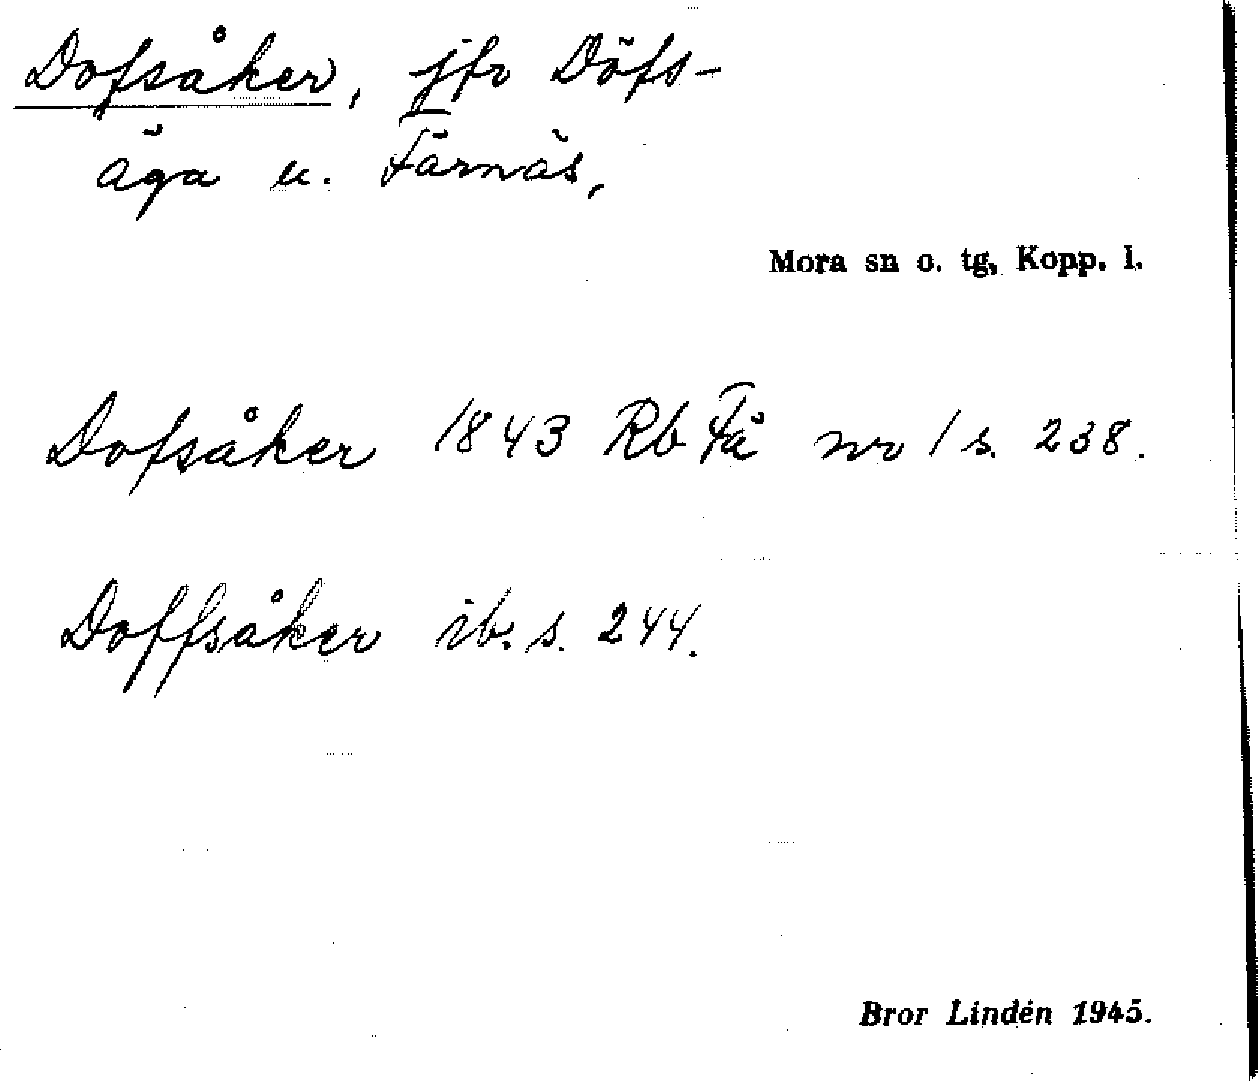 Dofsåker, jfr Döfs-
äga u. Färnäs,
Mora sn o. tg, Kopp. l.
Dofsåker 1843 Rb Fä nr 1 s. 238.
Doffsåker ib. s. 244.
Bror Lindén 1945.